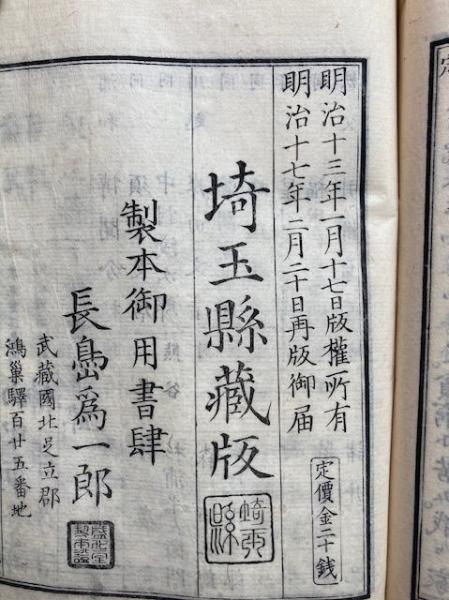 明治十三年一月十七日版權所有
明治十七年二月二十日再版御届
定價金二十錢
埼玉縣藏版
埼玉縣
製本御用書肆
長島爲一郎
武藏國北足立郡
鴻巢驛百廿五番地